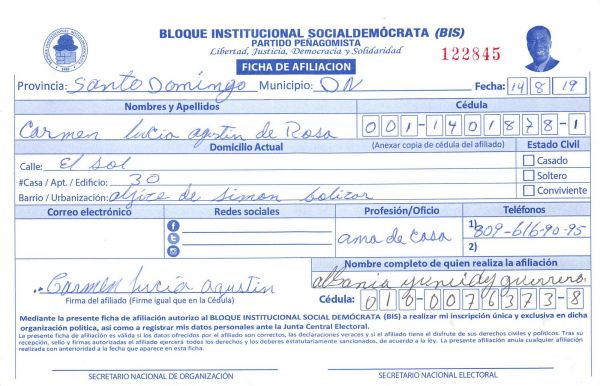 BLOQUE INSTITUCIONAL SOCIALDEMÓCRATA (BIS)
PARTIDO PEÑAGOMISTA
Libertad, Justicia, Democracia y Solidaridad
122845
FICHA DE AFILIACION
Provincia: Santo Domingo Municipio: DN Fecha: 14 8 19
Nombres y Apellidos Cédula
Carmen lucia agustin de Rosa 001-1401878-1
Domicilio Actual (Anexar copia de cédula del afiliado) Estado Civil
Calle: El sol Casado
#Casa / Apt. / Edificio: 30 Soltero
Barrio / Urbanización: de simon bolivar Conviviente
Correo electrónico Redes sociales Profesión/Oficio Teléfonos
ama de casa 1) 809-616-90-95
2)
Nombre completo de quien realiza la afiliación
Carmen lucía agustin guerrero
Firma del afiliado (Firme igual que en la Cédula) Cédula: 018-0076373-8
Mediante la presente ficha de afiliación autorizo al BLOQUE INSTITUCIONAL SOCIAL DEMÓCRATA (BIS) a realizar mi inscripción única y exclusiva en dicha
organización política, así como a registrar mis datos personales ante la Junta Central Electoral.
La presente ficha de afiliación es válida si los datos ofrecidos por el afiliado son correctos, las declaraciones veraces y si el afiliado tiene el disfrute de sus derechos civiles y políticos. Tras su
recepción, sello y firmas autorizadas el afiliado ejercerá todos los derechos y los deberes estatutariamente sancionados, de acuerdo a la ley. La presente afiliación anula cualquier afiliación
realizada con anterioridad a la fecha que aparece en esta ficha.
SECRETARIO NACIONAL DE ORGANIZACIÓN SECRETARIO NACIONAL ELECTORAL